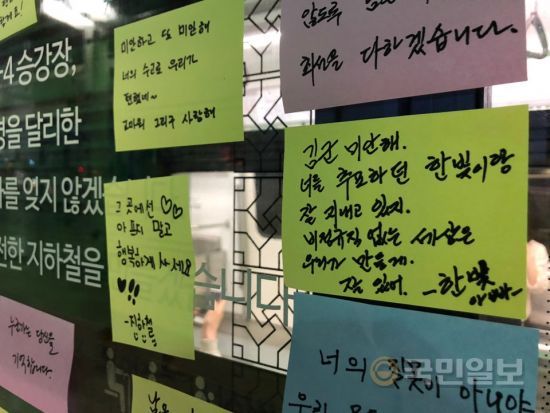 미안하고 또 미안해
너의 수고로 우리가
편했네~
고마워 그리구 사랑해
않도록
최선을 다하겠습니다.
-4 승강장,
을 달리한
를 잊지 않겠습니다
전한 지하철을
습니다
그 곳에선 ♡♡
아프지 말고
행복하게 사세요
♥!!
-지하철
김군 미안해.
너를 추모하던 한빛이랑
잘 지내고 있지.
비정규직 없는 세상은
우리가 만들게.
잘 있어. -한빛
아빠-
누군가는 당신을
기억합니다.
너의 잘못이 아니야
국민일보